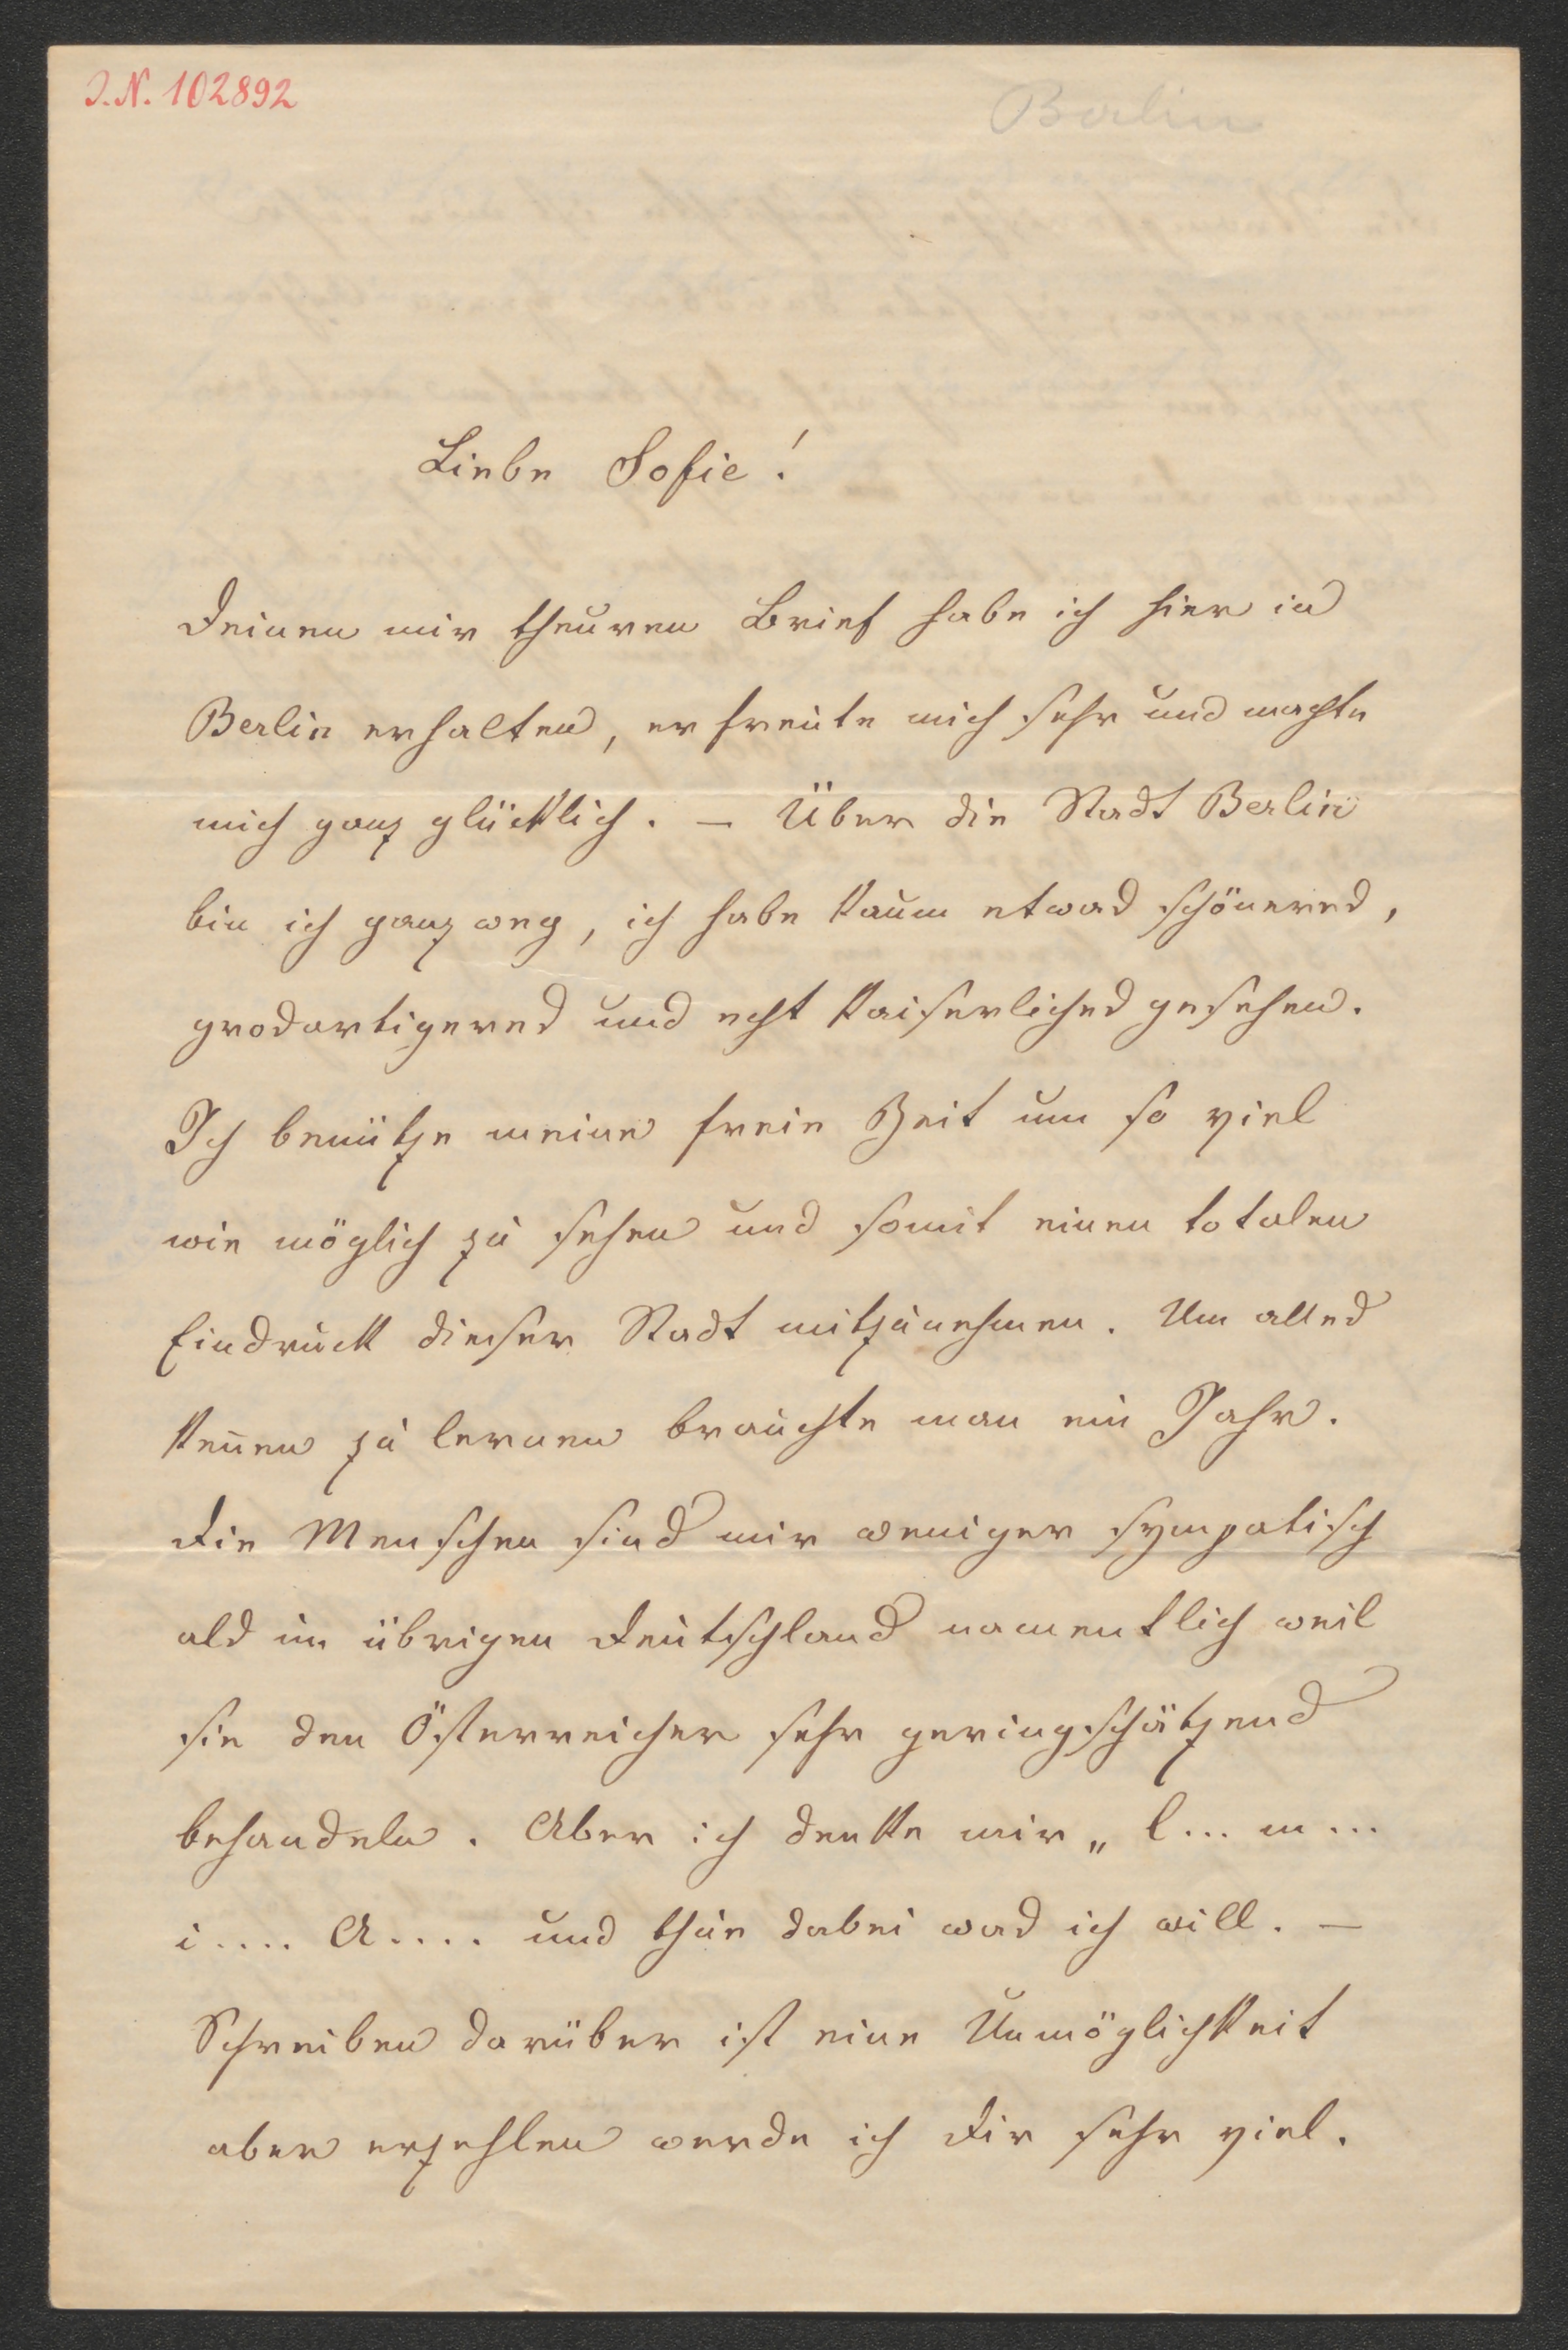 I.N. 102892
Berlin
Liebe Sofie!
Deinen mir theuren Brief habe ich hier in
Berlin erhalten, er freute mich sehr und machte
mich ganz glücklich. — Über die Stadt Berlin
bin ich ganz weg, ich habe kaum etwas schöneres,
grosartigeres und echt kaiserliches gesehen.
Ich benütze meine freie Zeit um so viel
wie möglich zu sehen und somit einen totalen
Eindruck dieser Stadt mitzunehmen. Um alles
kenen zu lernen brauchte man ein Jahr.
Die Menschen sind mir weniger sympatisch
als im übrigen Deutschland namentlich weil
sie den Österreicher sehr geringschätzend
behandeln. Aber ich denke mir „ l... m...
i.... A.... und thue dabei was ich will. —
Schreiben darüber ist eine Unmöglichkeit
aber erzehlen werde ich Dir sehr viel.